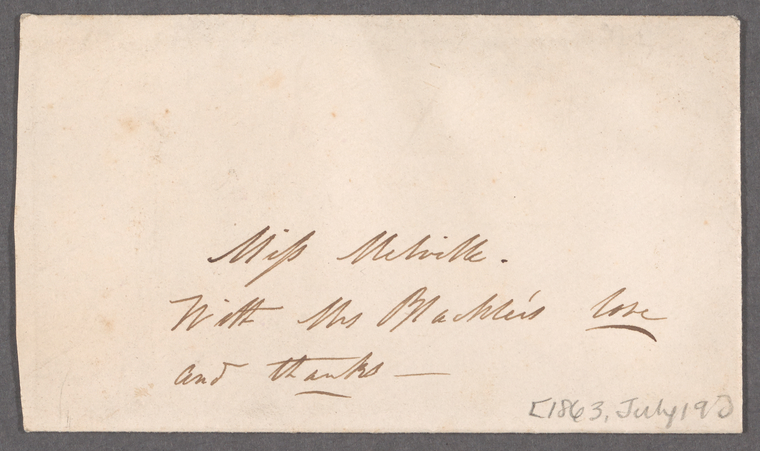 Miss Melville.
With Mrs Blackler's love
and thanks —
[1863, July 19]